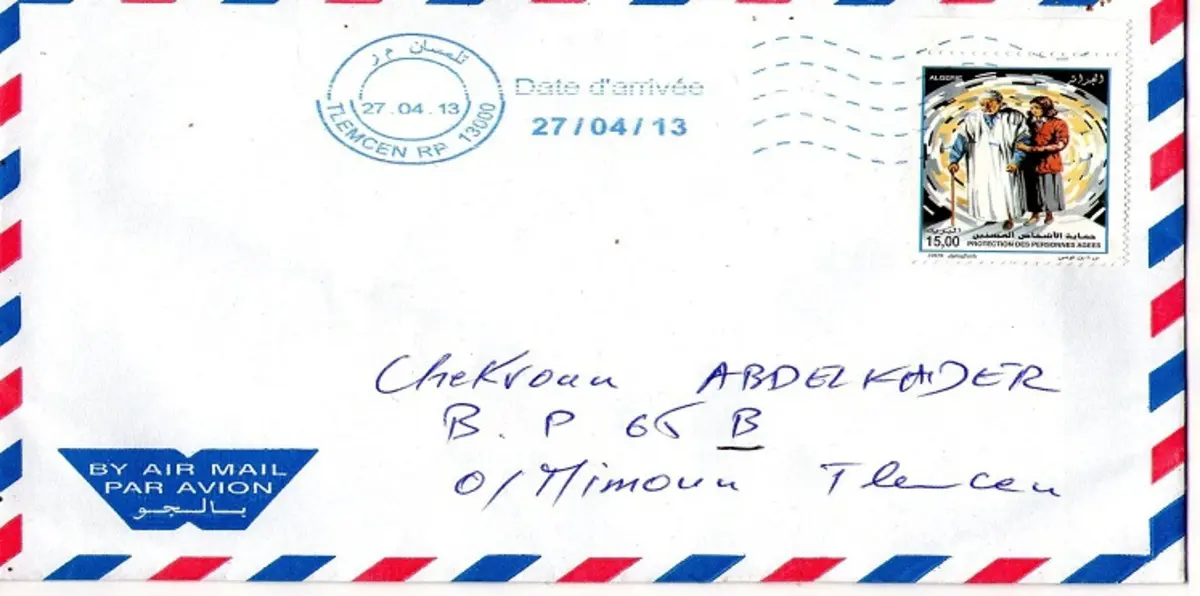 تلمسان م ز
27.04.13
TLEMCEN RP 13000
Date d'arrivée
27/04/13
ALGERIE الجزائر
البريد
15,00
حماية الأشخاص المسنين
PROTECTION DES PERSONNES AGEES
Chekroun ABDELKADER
B. P 65 B
O/Mimoun Tlemcen
BY AIR MAIL
PAR AVION
بالجو